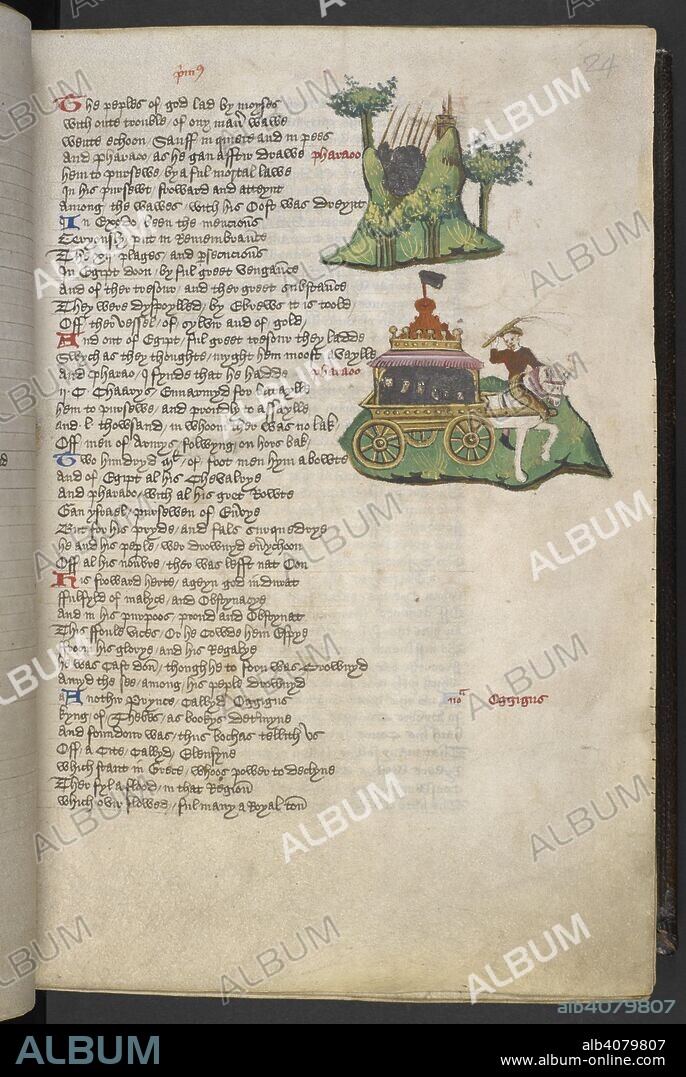 24
The peples of god lad by moyses
with oute trouble of ony man wawe
wente echoon Sauff in quiete and in pees
And pharaoo as he gan affter drawe
pharaoo
hem to pursewe by a ful mortal lawe
In his pursewt froward and atteynt
Among the wawes with his Oost was dreynt
In Exod been the mencious
put in Remembrance
The plages and persecucious
In Egipt doon by ful greet vengance
And of ther tresour and ther greet substance
They were dyspoylled by Ebrews it is toold
Off ther vessel of sylvir and of gold
And out of Egipt ful greet tresour they ladde
Swych as they thoughte myght hem moost avaylle
And pharao I fynde that he hadde
pharaoo
ii C Chaarys Ennarmyd for bataylle
hem to pursewe and proudly tassaylle
And L thowsand in whoom ther was no lak
Off men of Armys folwyng on hors bak
Two hundryd of foot men hym abowte
And of Egipt al his Chevalrye
And pharaoo with al his gret Rowte
Gan ysrael pursewen of Envye
But for his pryde and fals surquedrye
he and his peple wer drownyd
Off al his noumbre ther was lefft nat Oon
His froward herte ageyn god indurat
ffulfyld of malyce and Obstynacye
And in his purpoos proud and Obstynat
This ffoule vices Or he Cowde hem Espye
ffroom his glorye and his Regalye
he was Cast doun thoughe he to forn was Crownyd
Amyd the see among his peple drownyd
Anothir Prynce Callyd Oggigus
Oggigus
kyng of Thebes as bookys determyne
And foundour was thus bochas tellith us
Off a Cite Callyd Eleusyne
which stant in Grece whoos power to declyne
Ther fyl a flood in that Region
which ovir flowed ful many a Royal
ALBUM
alb4079807
ALBUM
alb4079807
www.album-online.com